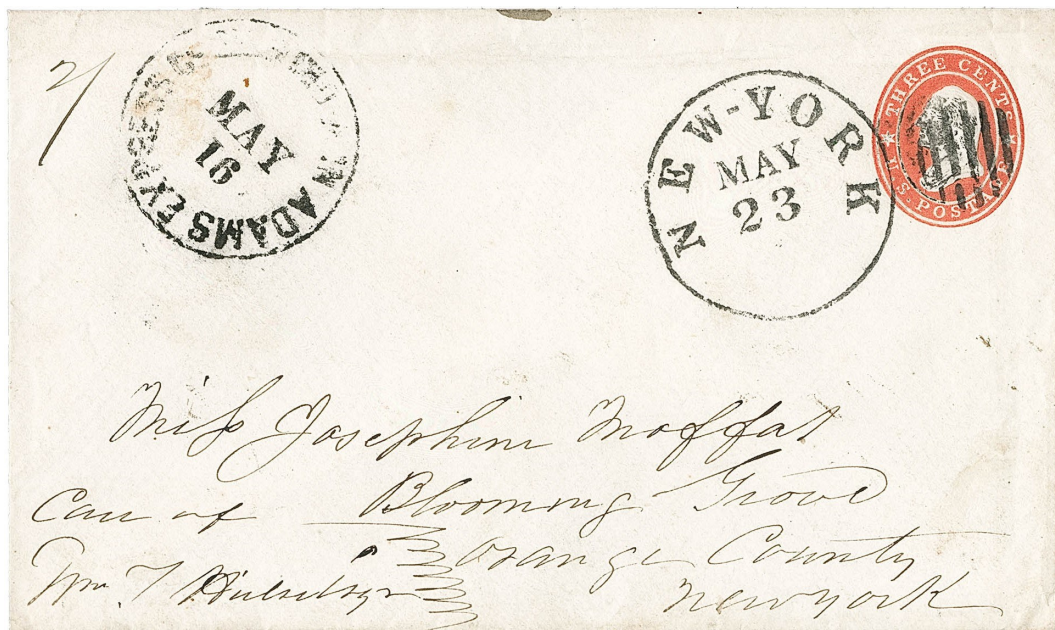 2/
ADAMS EXPRESS Co.
MAY
16
NEW-YORK
MAY
23
THREE CENTS
U.S. POSTAGE
Miss Josephine Moffat
Blooming Grove
Care of
Orange County
Wm. T
New york